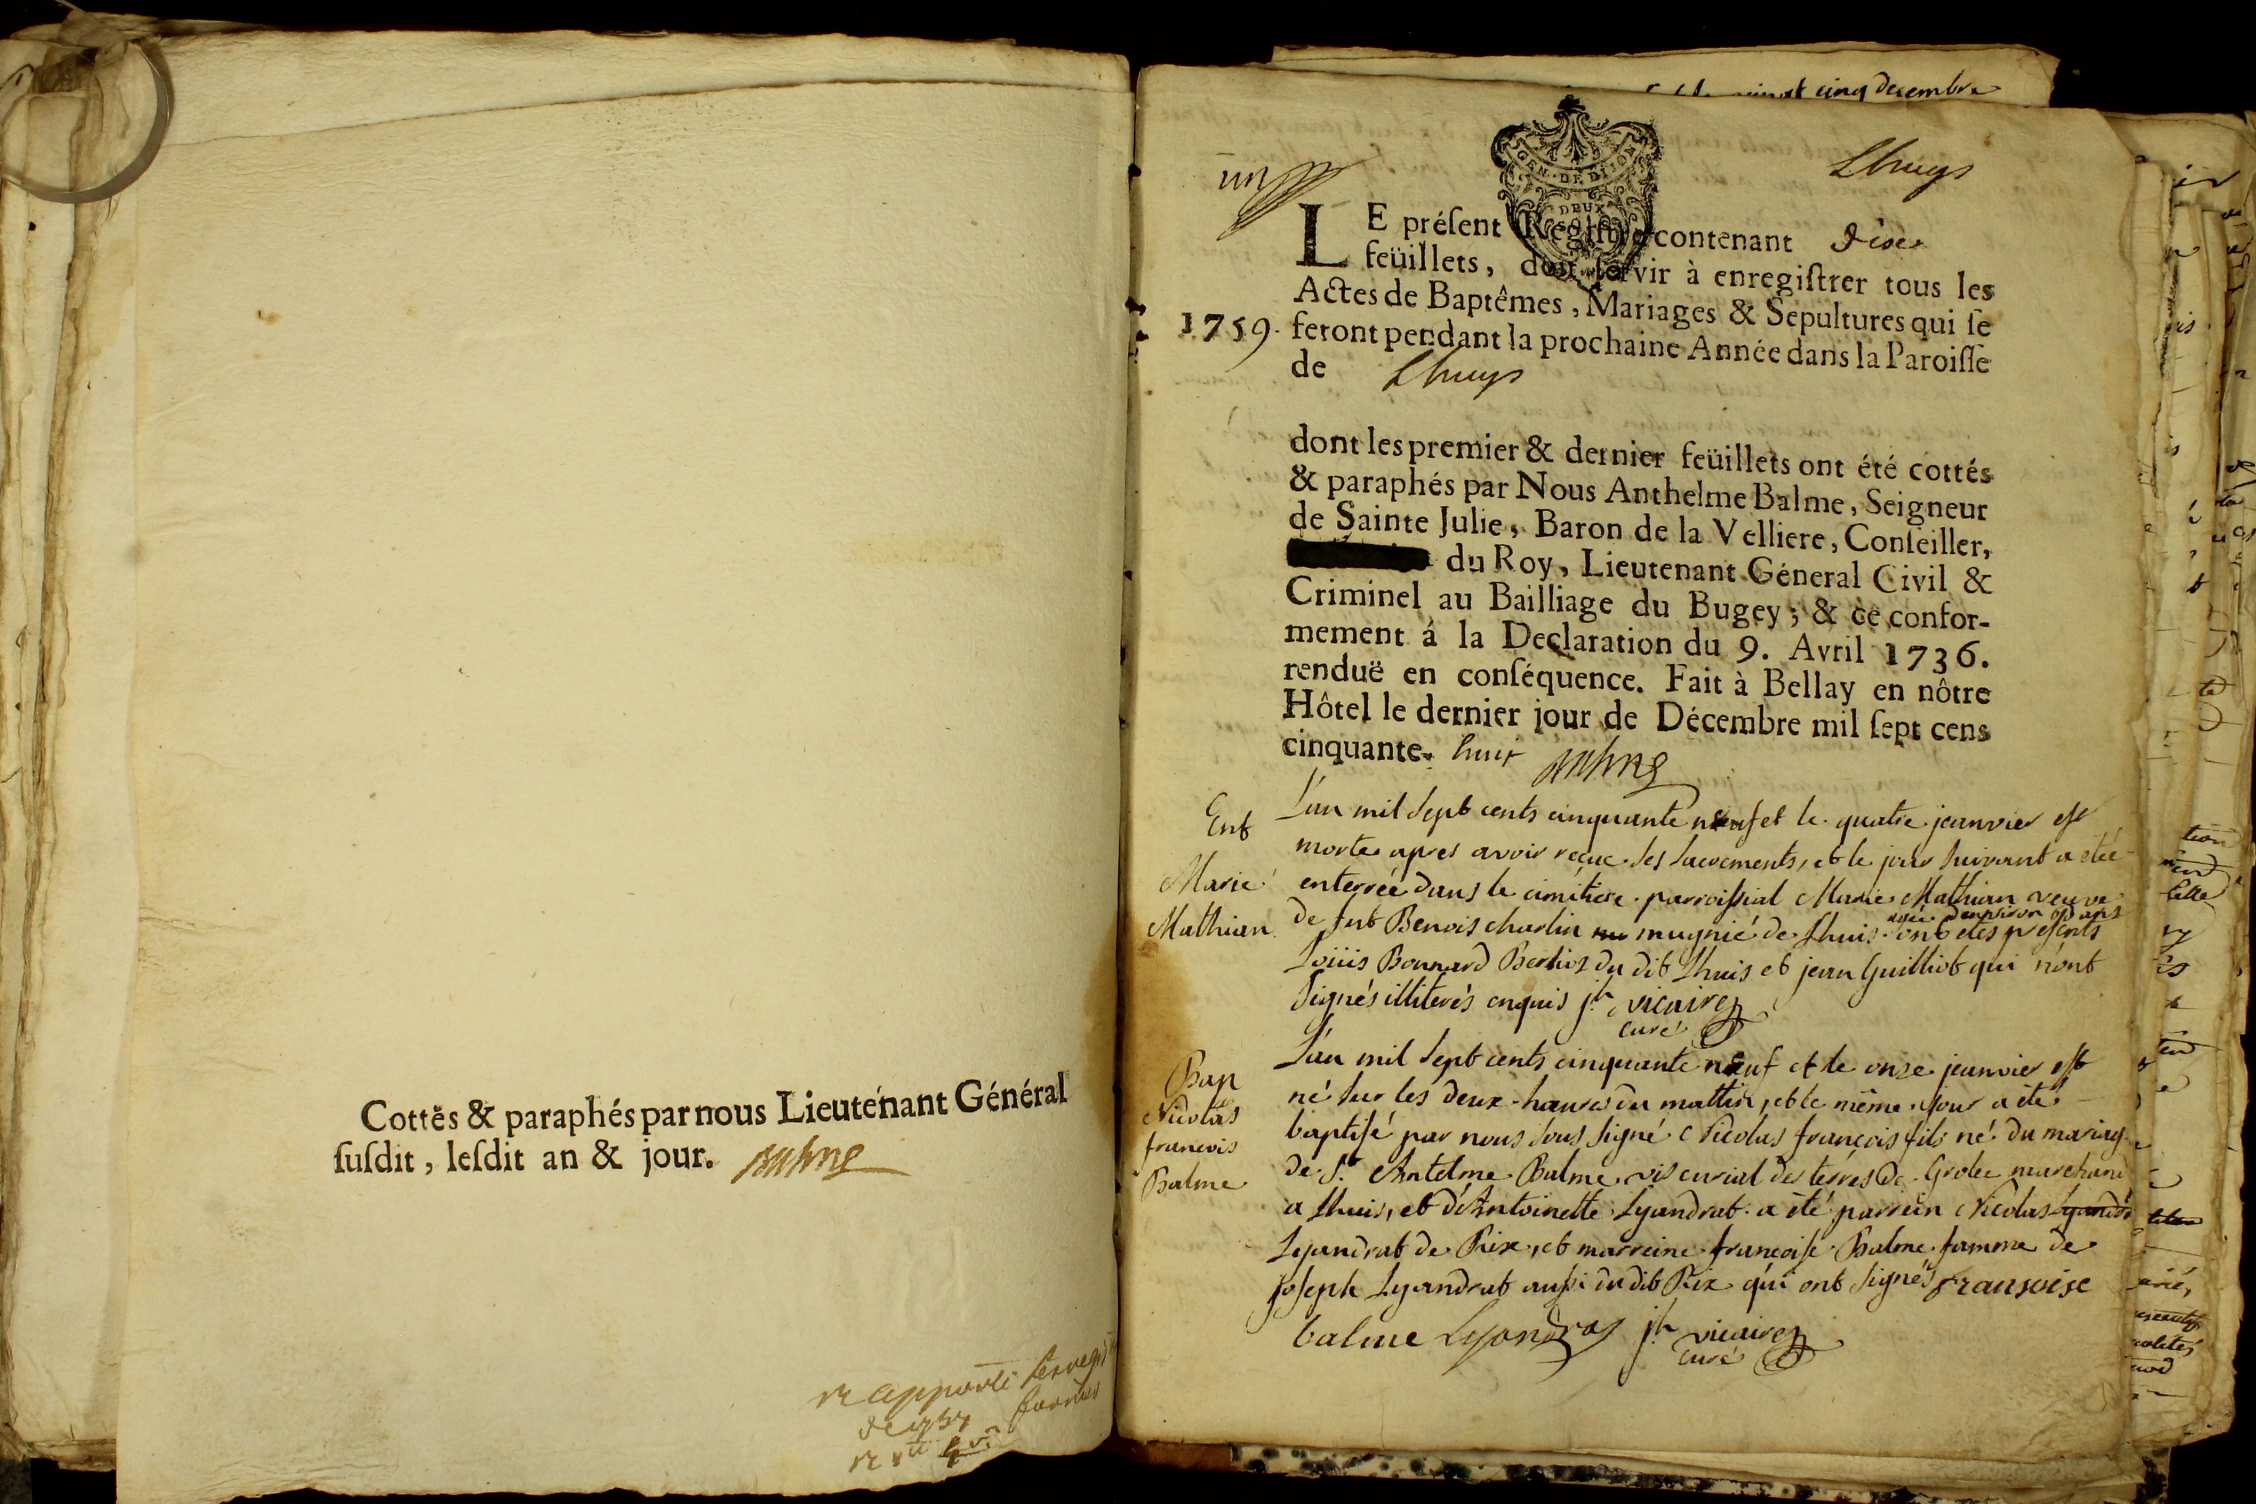 Cottés & paraphés par nous Lieutenant Général
ſuſdit, leſdit an & jour. Balme
rapporté
cinq decembre
un
GEN. DE DIJON
DEUX
Lhuys
LE préſent Regiſtre contenant dixe
feüillets, doit ſervir à enregiſtrer tous les
Actes de Baptêmes, Mariages & Sepultures qui ſe
1759. feront pendant la prochaine Année dans la Paroiſſe
de Lhuys
dont les premier & dernier feüillets ont été cottés
& paraphés par Nous Anthelme Balme, Seigneur
de Sainte Julie, Baron de la Velliere, Conſeiller,
du Roy, Lieutenant Géneral Civil &
Criminel au Bailliage du Bugey; & ce confor-
mement á la Declaration du 9. Avril 1736.
renduë en conſéquence. Fait à Bellay en nôtre
Hôtel le dernier jour de Décembre mil ſept cens
cinquante-huit Balme
Ent
Marie
Mathian
L'an mil sept cents cinquante neuf et le quatre jeanvier est
morte apres avoir reçue les sacrements, et le jour suivant a étée
enterrée dans le cimitiere parroissial Marie Mathian veuve
agée d'environ
de fut Benois charlin mugnié de Lhuis ont étés présents
Loüis Bonnard Berlioz du dit Lhuis et jean Guilliot qui n'ont
signés illiterés enquis jh vicaire
curé
Bap
Nicolas
francois
Balme
L'an mil sept cents cinquante neuf et le onze jeanvier est
né sur les deux heures du mattin, et le même jour a été
baptisé par nous sous signé Nicolas francois fils né du mariage
de Sr. Antelme Balme vis curial des terres de Grolee marchand
a Lhuis, et d'Antoinette Lyandrat a été parrein Nicolas Lyandra
Lyandrat de Rix, et marreine francoise Balme famme de
joseph Lyandrat aussi du dit Rix qui ont signés fransoise
balme Lyandras jh vicaire
curé